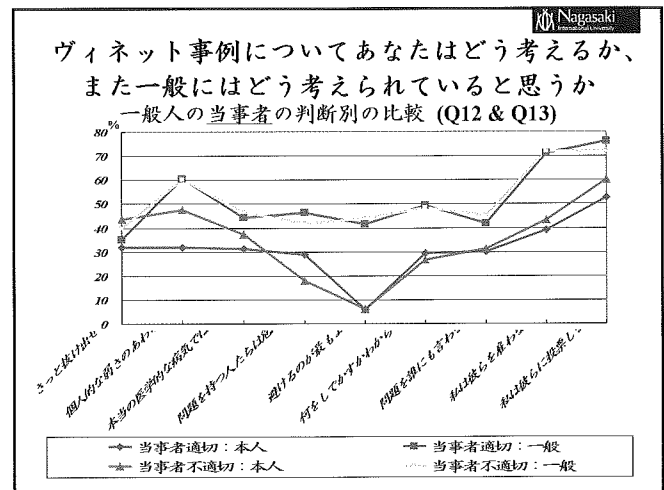 Nagasaki
International University
ヴィネット事例についてあなたはどう考えるか、
また一般にはどう考えられていると思うか
一般人の当事者の判断別の比較 (Q12 & Q13)
%
80
70
60
50
40
30
20
10
0
さっと抜け出せ
個人的な弱さのあわ
本当の医学的な病気では
問題を持つ人たちは危
避けるのが最も
何をしでかすかわから
問題を誰にも言わ
私は彼らを雇わな
私は彼らに投票し
当事者適切：本人
当事者適切：一般
当事者不適切：本人
当事者不適切：一般